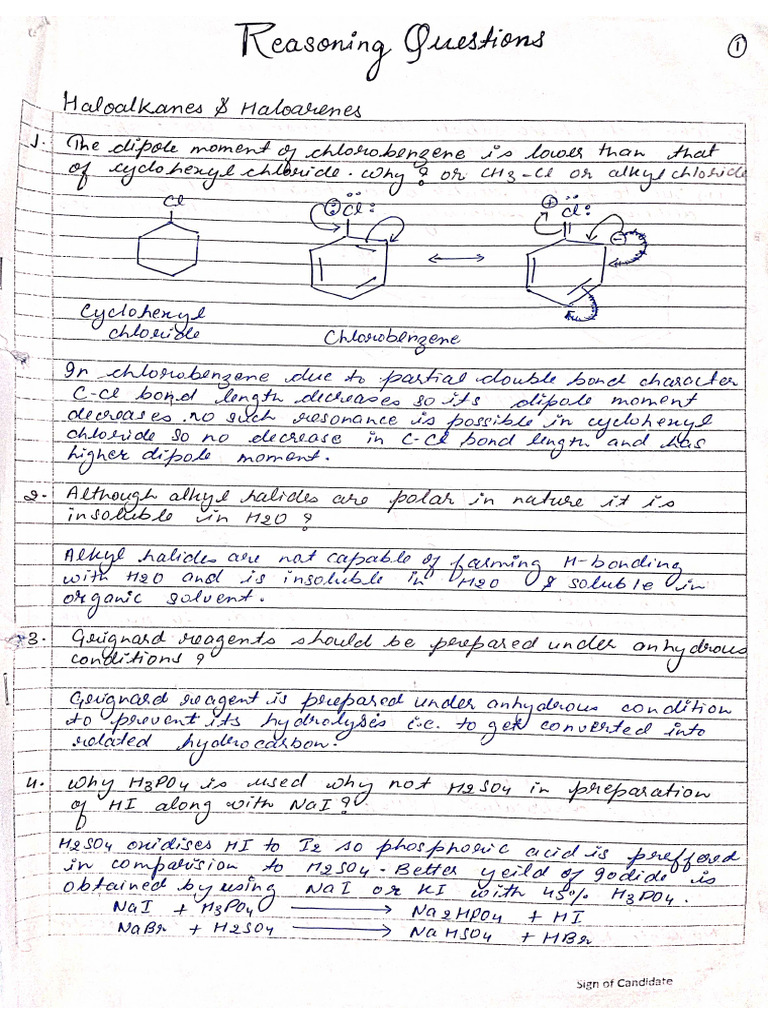 Reasoning Questions
①
Haloalkanes & Haloarenes
1. The dipole moment of chlorobenzene is lower than that
of cyclohexyl chloride. Why? or CH3-Cl or alkyl chloride
Cl
Cl:
⊕
Cl:
⊖
Cyclohexyl
chloride
Chlorobenzene
In chlorobenzene due to partial double bond character
C-Cl bond length decreases so its dipole moment
decreases. no such resonance is possible in cyclohexyl
chloride so no decrease in C-Cl bond length and has
higher dipole moment.
2. Although alkyl halides are polar in nature it is
insoluble in H2O?
Alkyl halides are not capable of farming H-bonding
with H2O and is insoluble in H2O & soluble in
organic solvent.
3. Grignard reagents should be prepared under anhydrous
conditions?
Grignard reagent is prepared under anhydrous condition
to prevent its hydrolysis i.e. to get converted into
related hydrocarbon.
4. Why H3PO4 is used why not H2SO4 in preparation
of HI along with NaI?
H2SO4 oxidises HI to I2 so phosphoric acid is preffered
in comparision to H2SO4. Better yeild of Iodide is
obtained by using NaI or KI with 45% H3PO4.
NaI + H3PO4 → Na2HPO4 + HI
NaBr + H2SO4 → NaHSO4 + HBr
Sign of Candidate